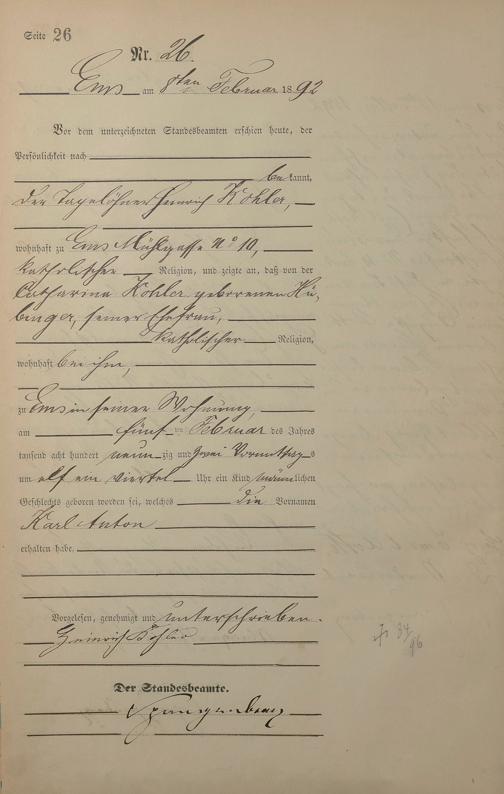 Seite 26
Nr. 26.
Ems am 8ten Februar 1892
Vor dem unterzeichneten Standesbeamten erschien heute, der
Persönlichkeit nach
bekannt,
der Tagelöhner Heinrich Kohler,
wohnhaft zu Ems Mühlgasse No 10,
katholischer Religion, und zeigte an, daß von der
Catharina Kohler geborenen Hü-
binger, seiner Ehefrau,
katholischer Religion,
wohnhaft bei ihm,
zu Ems in seiner Wohnung,
am fünften Februar des Jahres
tausend acht hundert neunzig und zwei Vormittags
um elf ein viertel Uhr ein Kind männlichen
Geschlechts geboren worden sei, welches die Vornamen
Karl Anton
erhalten habe.
Vorgelesen, genehmigt und unterschrieben.
Heinrich Kohler
Der Standesbeamte.
Spangenberg
34/96